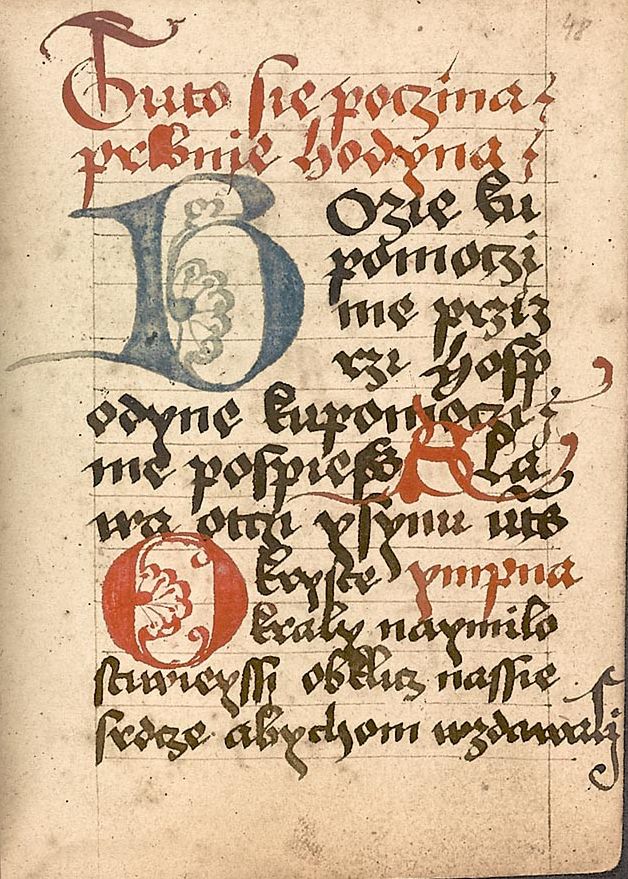 48
Tuto sie poczina
prwnije hodyna
BOzie ku
pomoczi
me przız
rzi hosp
odyne kupomoczi
me pospiess Sla
wa otczi ysynu
Okryste ympna
kraly naymilo
stiwieyssi obklicz nassie
srdcze abychom wzdawali